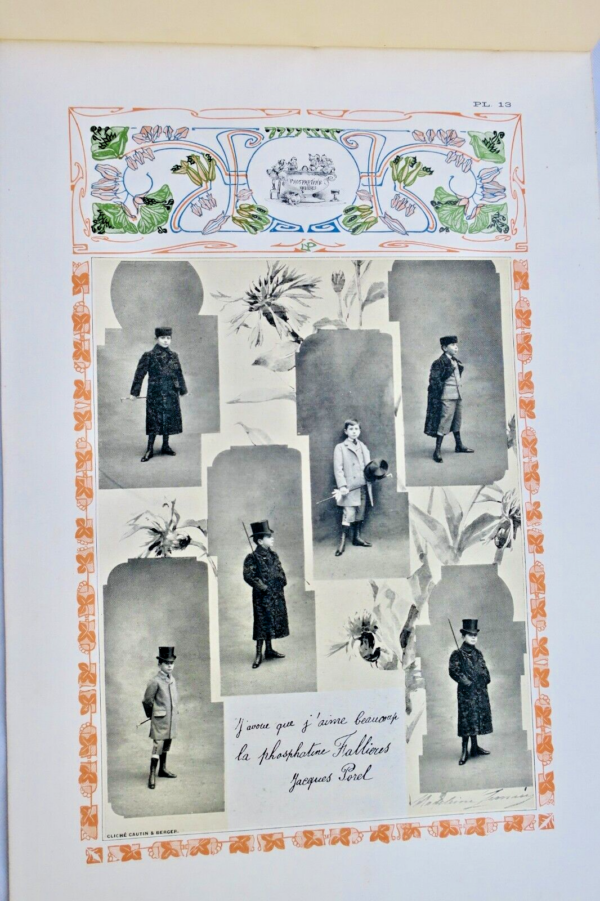 PL. 13
J'avoue que j'aime beaucoup
la phosphatine Fallières
Jacques Porel
CLICHÉ CAUTIN & BERGER.